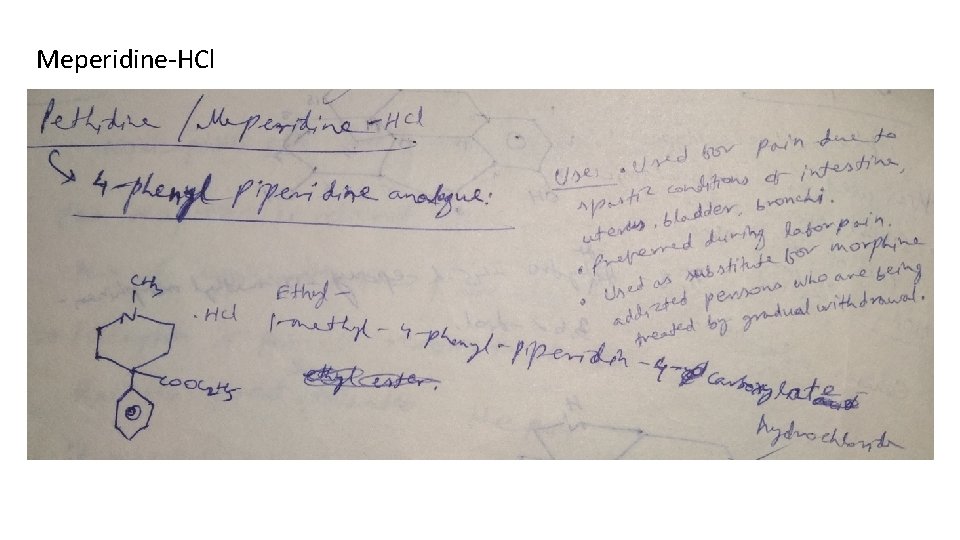 Meperidine-HCl
Pethidine / Meperidine-HCl
4-phenyl piperidine analogue.
Uses • Used for pain due to
spastic conditions of intestine,
uterus, bladder, bronchi.
• Preferred during labor pain.
• Used as substitute for morphine
addicted persons who are being
treated by gradual withdrawal.
CH3
N
.HCl
COOC2H5
Ethyl-
1-methyl-4-phenyl-piperidin-4-carboxylate
hydrochloride